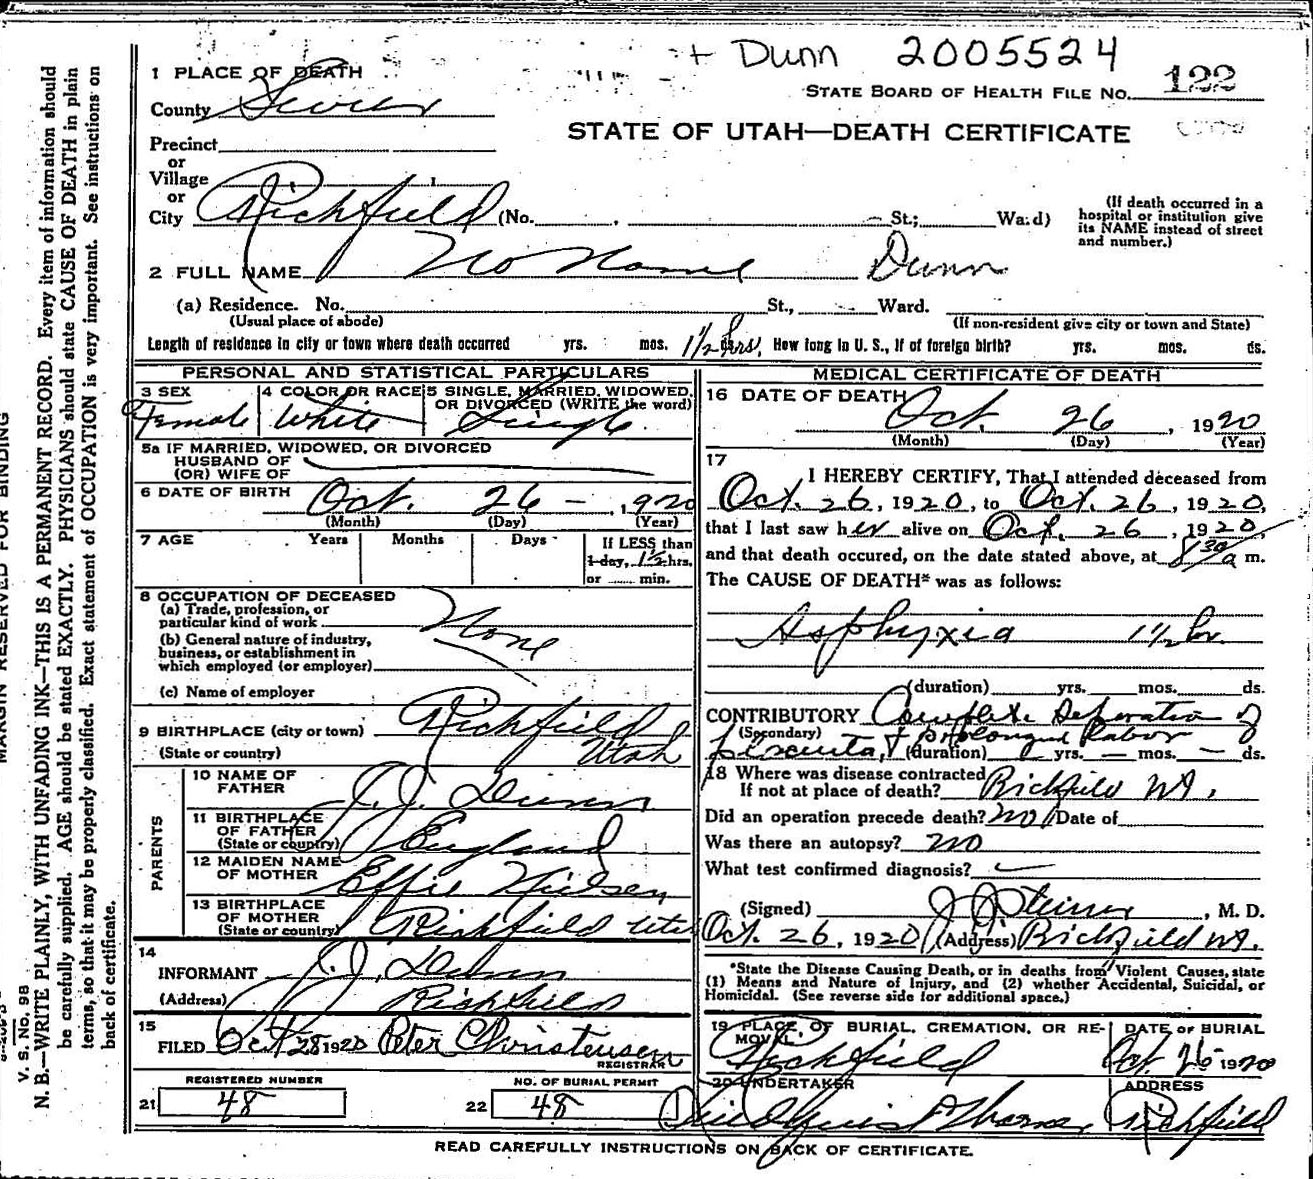 + Dunn 2005524
1 PLACE OF DEATH
STATE BOARD OF HEALTH FILE No. 122
County Sevier
STATE OF UTAH—DEATH CERTIFICATE
Precinct
or
Village
or
City Richfield (No. , St.; Wa:d)
(If death occurred in a
hospital or institution give
its NAME instead of street
and number.)
2 FULL NAME No Name Dunn
(a) Residence. No. St., Ward.
(Usual place of abode) (If non-resident give city or town and State)
Length of residence in city or town where death occurred yrs. mos. 1 1/2 hrs. How long in U. S., if of foreign birth? yrs. mos. ds.
PERSONAL AND STATISTICAL PARTICULARS
3 SEX 4 COLOR OR RACE 5 SINGLE, MARRIED, WIDOWED,
OR DIVORCED (WRITE the word)
Female White Single
5a IF MARRIED, WIDOWED, OR DIVORCED
HUSBAND OF
(OR) WIFE OF
6 DATE OF BIRTH Oct. 26 - , 1920
(Month) (Day) (Year)
7 AGE Years Months Days If LESS than
1 day, 1 1/2 hrs.
or ...... min.
8 OCCUPATION OF DECEASED
(a) Trade, profession, or
particular kind of work None
(b) General nature of industry,
business, or establishment in
which employed (or employer)
(c) Name of employer
9 BIRTHPLACE (city or town) Richfield
(State or country) Utah
PARENTS
10 NAME OF
FATHER J. J. Dunn
11 BIRTHPLACE
OF FATHER
(State or country) England
12 MAIDEN NAME
OF MOTHER Effie Nielsen
13 BIRTHPLACE
OF MOTHER
(State or country) Richfield Utah
14
INFORMANT J. J. Dunn
(Address) Richfield
15
FILED Oct 28 1920 Peter Christensen
REGISTRAR
REGISTERED NUMBER NO. OF BURIAL PERMIT
21 48 22 48
MEDICAL CERTIFICATE OF DEATH
16 DATE OF DEATH Oct. 26 , 1920
(Month) (Day) (Year)
17
I HEREBY CERTIFY, That I attended deceased from
Oct. 26, 1920, to Oct. 26, 1920,
that I last saw her alive on Oct. 26, 1920,
and that death occured, on the date stated above, at 8 30/a m.
The CAUSE OF DEATH* was as follows:
Asphyxia 1 1/2 hr.
(duration) yrs. mos. ds.
CONTRIBUTORY Complete Separation of
(Secondary) & prolonged labor
(duration) yrs. — mos. — ds.
18 Where was disease contracted
If not at place of death? Richfield Ut.
Did an operation precede death? no Date of
Was there an autopsy? no
What test confirmed diagnosis?
(Signed) J J Steiner, M. D.
Oct. 26, 1920 (Address) Richfield Ut.
*State the Disease Causing Death, or in deaths from Violent Causes, state
(1) Means and Nature of Injury, and (2) whether Accidental, Suicidal, or
Homicidal. (See reverse side for additional space.)
19 PLACE OF BURIAL, CREMATION, OR RE-
MOVAL DATE OF BURIAL
Richfield Oct. 26 1920
20 UNDERTAKER ADDRESS
Richfield
READ CAREFULLY INSTRUCTIONS ON BACK OF CERTIFICATE.
MARGIN RESERVED FOR BINDING
V. S. No. 98
N. B.—WRITE PLAINLY, WITH UNFADING INK—THIS IS A PERMANENT RECORD. Every item of information should
be carefully supplied. AGE should be stated EXACTLY. PHYSICIANS should state CAUSE OF DEATH in plain
terms, so that it may be properly classified. Exact statement of OCCUPATION is very important. See instructions on
back of certificate.